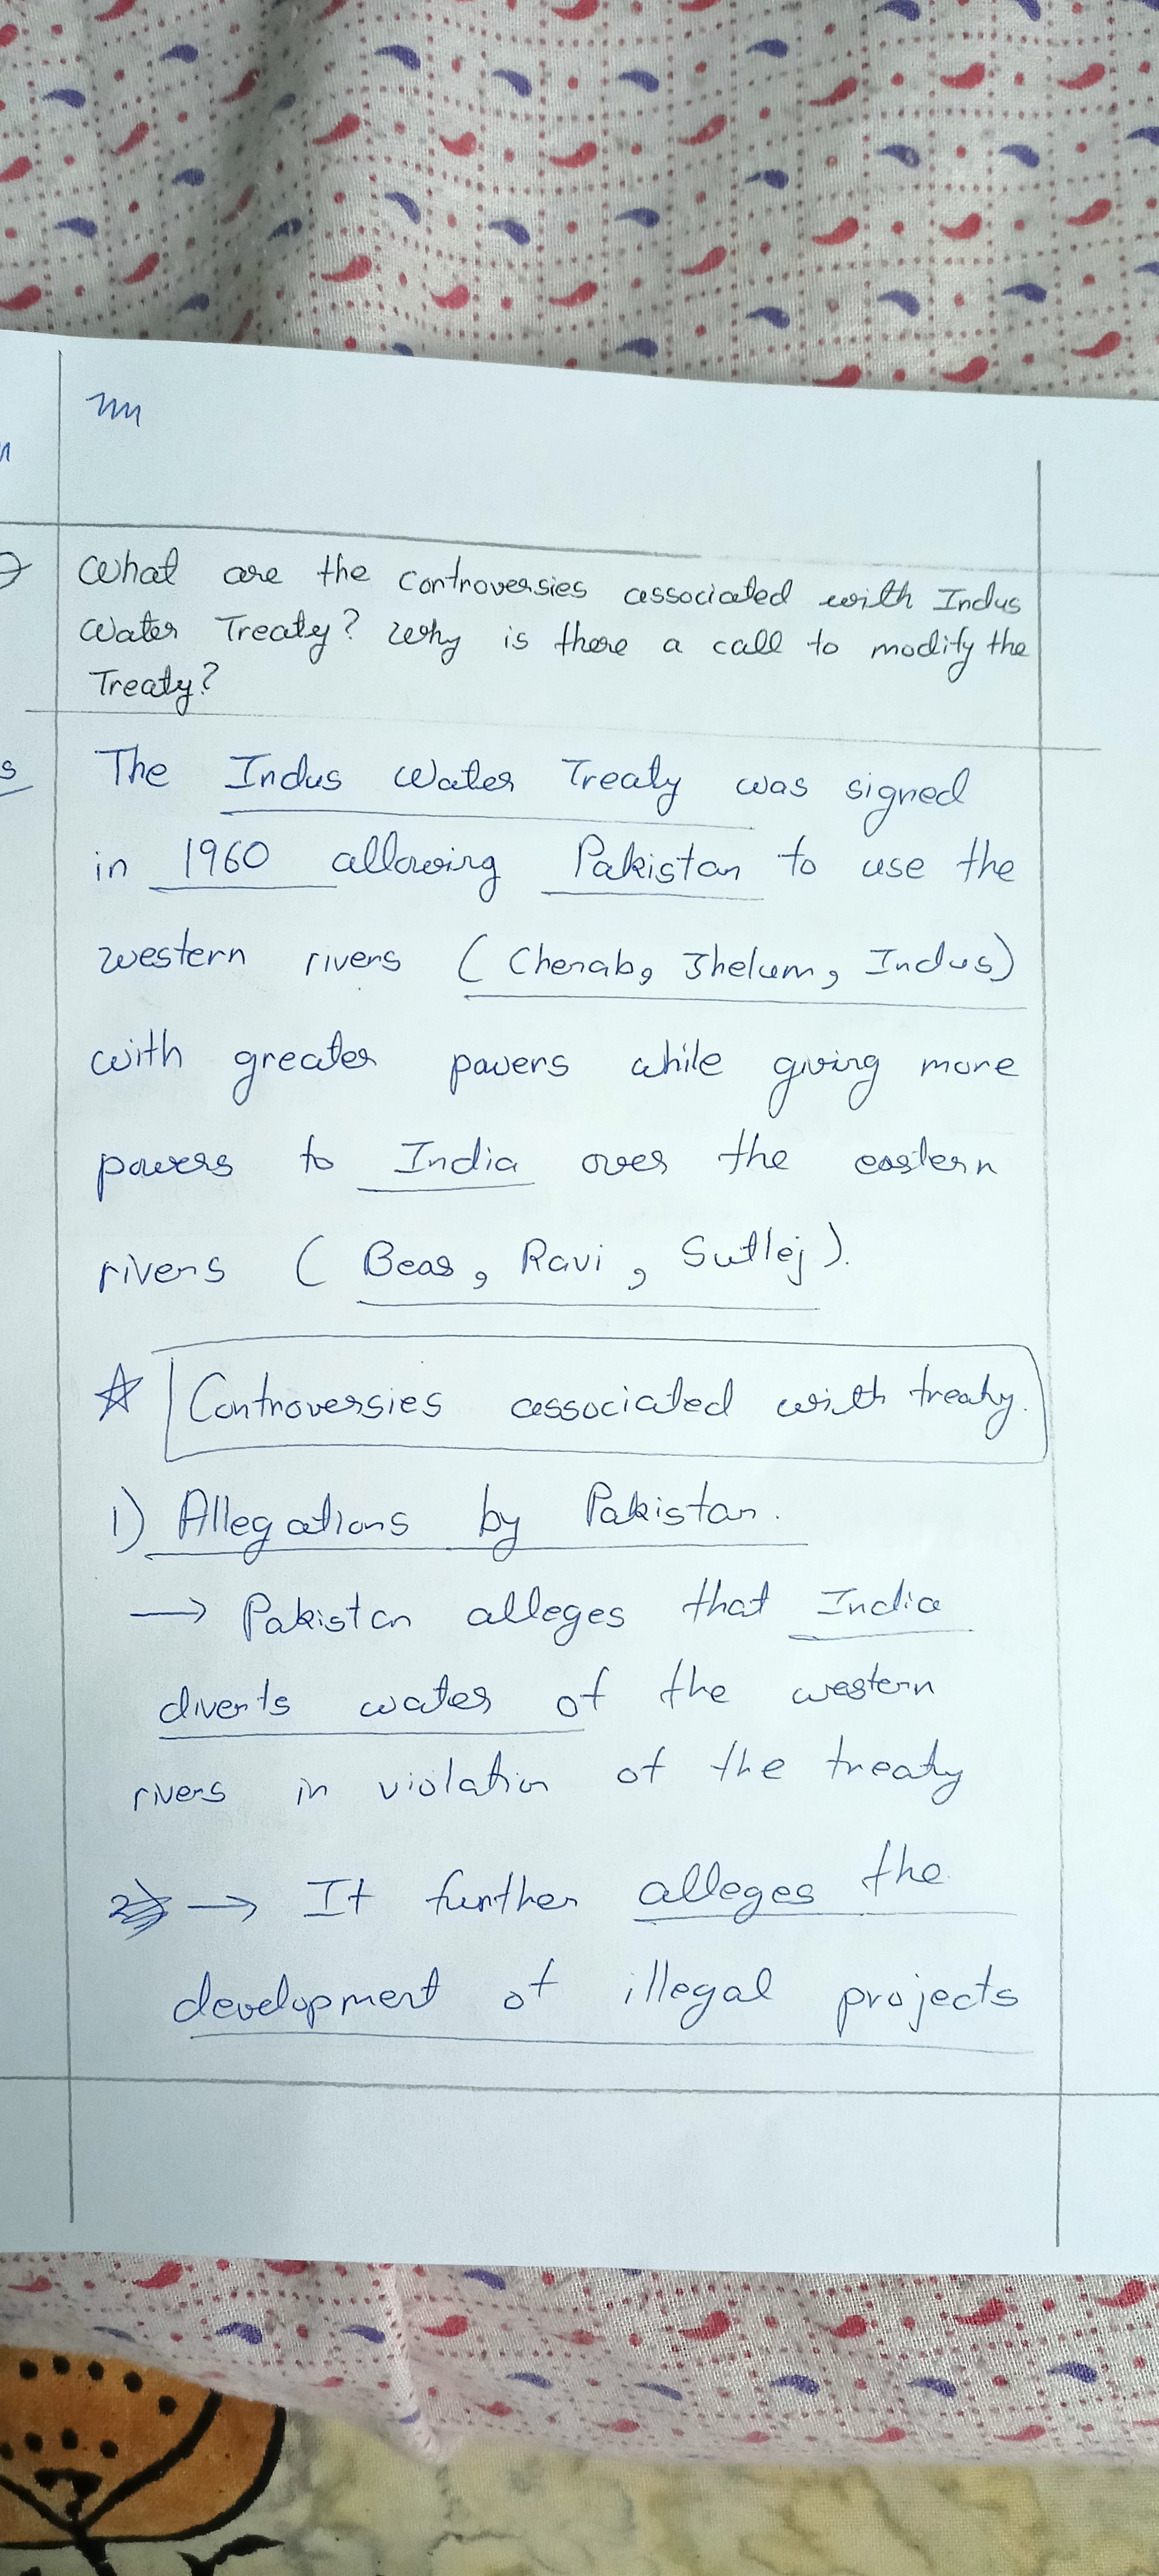 What are the controversies associated with Indus
Water Treaty? Why is there a call to modify the
Treaty?
The Indus Water Treaty was signed
in 1960 allowing Pakistan to use the
western rivers (Chenab, Jhelum, Indus)
with greater powers while giving more
powers to India over the eastern
rivers (Beas, Ravi, Sutlej).
☆ Controversies associated with treaty.
1) Allegations by Pakistan.
→ Pakistan alleges that India
diverts water of the western
rivers in violation of the treaty
→ It further alleges the
development of illegal projects